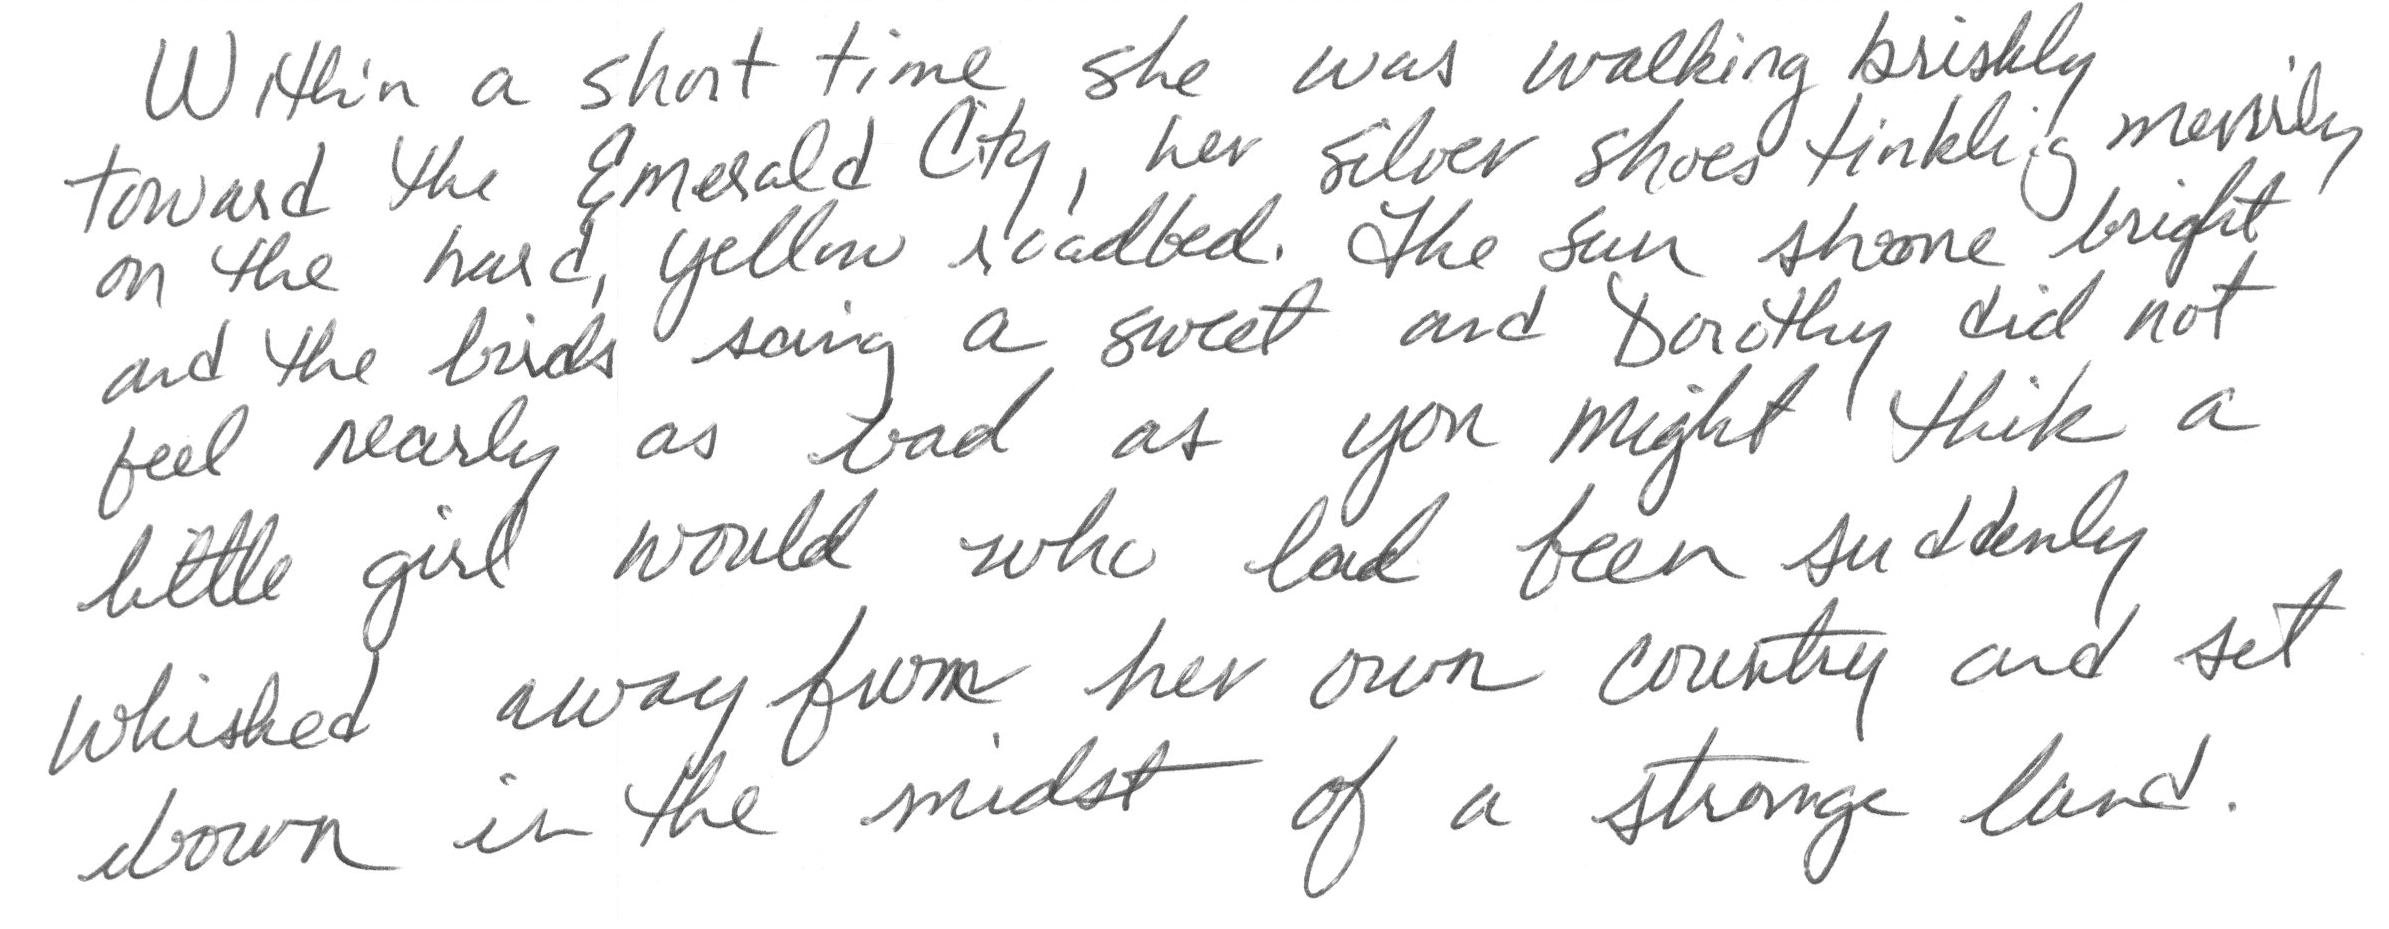 Within a short time she was walking briskly
toward the Emerald City, her silver shoes tinklig merrily
on the hard, yellow roadbed. The sun shone bright
and the birds saing a sweet and Dorothy did not
feel nearly as bad as you might thik a
little girl would who had been suddenly
whisked away from her own country and set
down in the midst of a strange land.